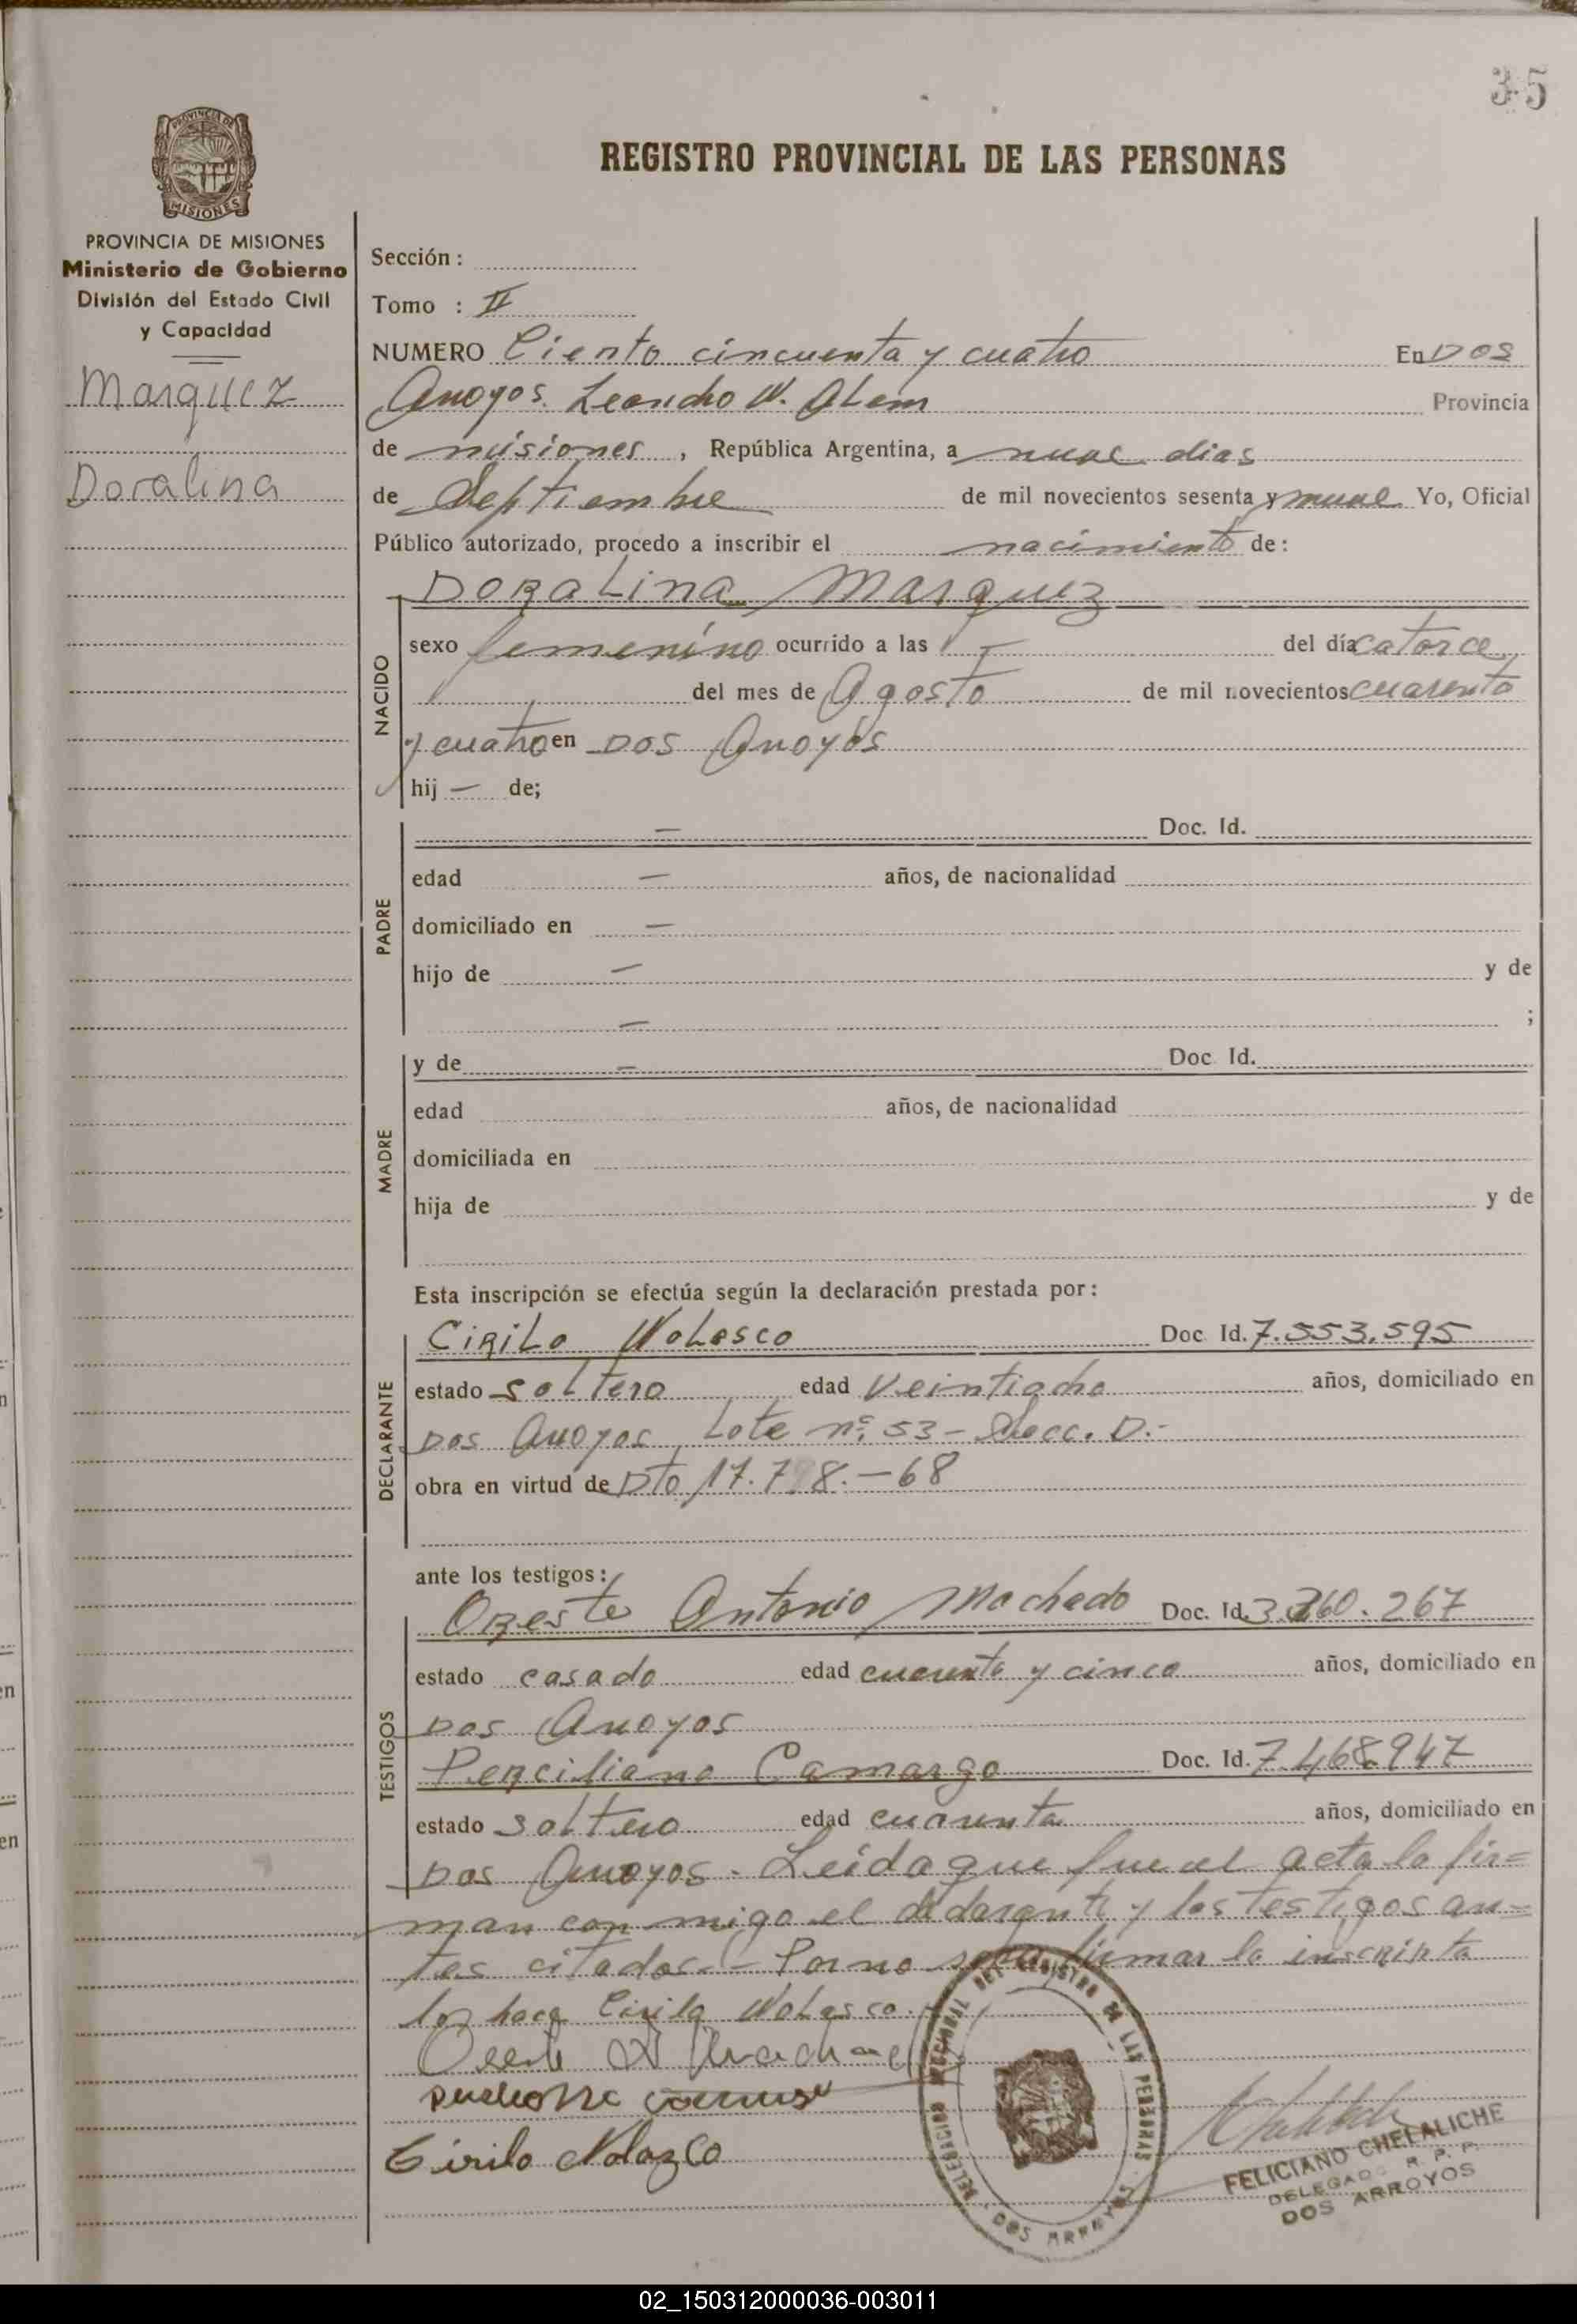 35
REGISTRO PROVINCIAL DE LAS PERSONAS
PROVINCIA DE MISIONES
MISIONES
PROVINCIA DE MISIONES
Ministerio de Gobierno
División del Estado Civil
y Capacidad
Marquez
Doralina
Sección :
Tomo : II
NUMERO Ciento cincuenta y cuatro En Dos
Arroyos. Leandro N. Alem Provincia
de misiones , República Argentina, a nueve dias
de Septiembre de mil novecientos sesenta y nueve Yo, Oficial
Público autorizado, procedo a inscribir el nacimiento de:
NACIDO
DORALINA Marquez
sexo femenino ocurrido a las — del día catorce
del mes de Agosto de mil novecientos cuarenta
y cuatro en Dos Arroyos
hij — de;
PADRE
— Doc. Id.
edad — años, de nacionalidad
domiciliado en —
hijo de — y de
— ;
MADRE
y de — Doc. Id.
edad años, de nacionalidad
domiciliada en
hija de y de
Esta inscripción se efectúa según la declaración prestada por:
DECLARANTE
CIRILO Nolasco Doc. Id. 7.553.595
estado soltero edad Veintiocho años, domiciliado en
Dos Arroyos, Lote nº 53 - Secc. D.-
obra en virtud de Dto 68
ante los testigos:
TESTIGOS
Oreste Antonio Machado Doc. Id. 260.267
estado casado edad cuarenta y cinco años, domiciliado en
Dos Arroyos
Perciliano Camargo Doc. Id. 7.468.947
estado soltero edad cuarenta años, domiciliado en
Dos Arroyos. Leída que fue el acta la fir=
man con migo el declarante y los testigos an=
tes citados.- Por no saber firmar la inscripta
lo hace Cirilo Nolasco.
Cirilo Nolazco
DELEGACION NACIONAL DEL REGISTRO DE LAS PERSONAS
DOS ARROYOS
FELICIANO CHEFALICHE
DELEGADO R. P. P.
DOS ARROYOS
02_150312000036-003011